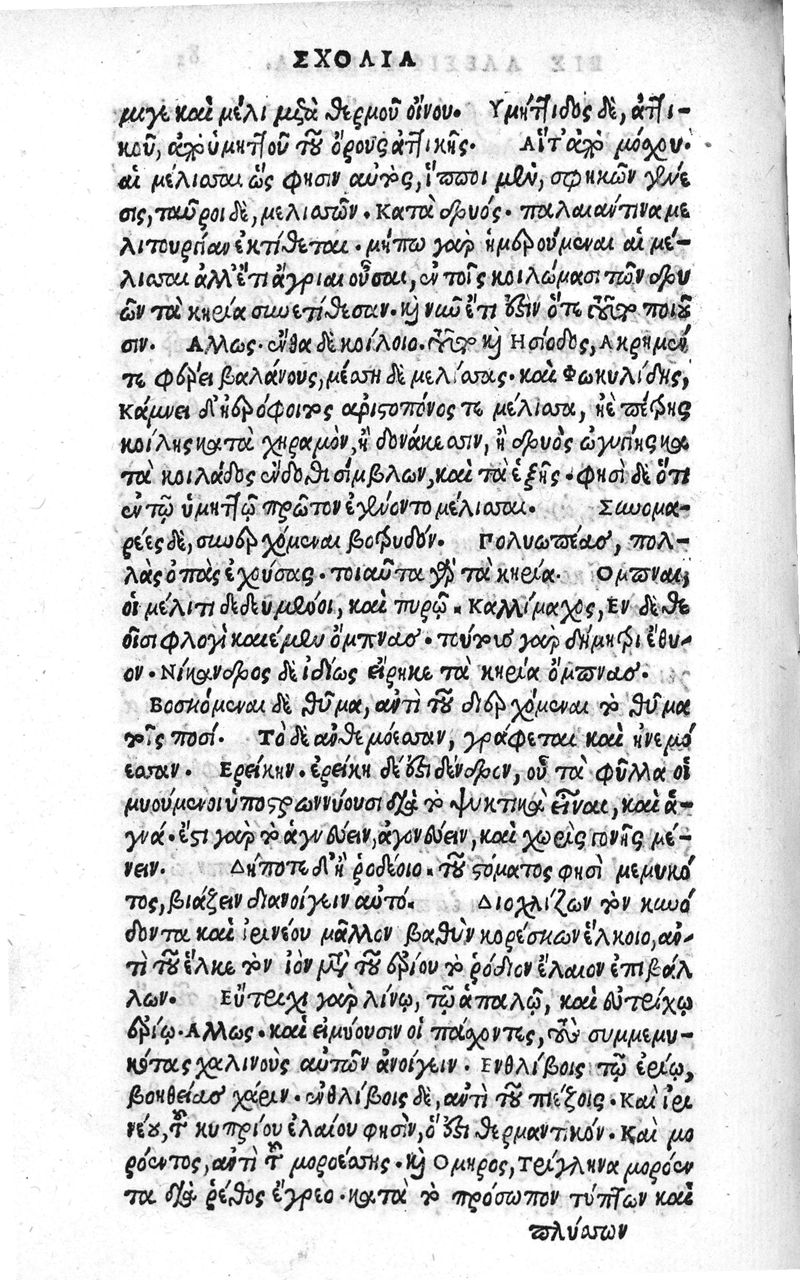 ΣΧΟΛΙΑ
μιγε καὶ μέλι μετὰ θερμοῦ οἴνου. Υμήττιδος δὲ, ἀττι-
κοῦ, ἀπὸ ὑμηττοῦ τοῦ ὄρους ἀττικῆς. Αἵτ' ἀπὸ μόσχου.
αἱ μέλισσαι ὥς φησιν αὐτὸς, ἵπποι μὲν, σφηκῶν γένε
σις, ταῦροι δὲ, μελισσῶν. Κατὰ δρυός. παλαιάν τινα με
λιτουργίαν ἐκτίθεται. μήπω γὰρ ἡμερούμεναι αἱ μέ-
λισσαι ἀλλ' ἔτι ἄγριαι οὖσαι, ἐν τοῖς κοιλώμασι τῶν δρυ
ῶν τὰ κηρία συνετίθεσαν. καὶ νῦν ἔτι ἐστὶν ὅτε τοῦτο ποιοῦ
σιν. Αλλως. ἔνθα δὲ κοίλοιο. τοῦτο καὶ Ησίοδος, Ακρη μέν
τε φέρει βαλάνους, μέσση δὲ μελίσσας. καὶ Φωκυλίδης,
Κάμνει δ' ἠερόφοιτος ἀριστοπόνος τε μέλισσα, ἠὲ πέτρης
κοίλης κατὰ χηραμὸν, ἢ δονάκεσσιν, ἢ δρυὸς ὠγυγίης κα
τὰ κοιλάδος ἔνδοθι σίμβλων, καὶ τὰ ἑξῆς. φησὶ δὲ ὅτι
ἐν τῷ ὑμηττῷ πρῶτον ἐγένοντο μέλισσαι. Συνομα-
ρέες δὲ, συνερχόμεναι βοτρυδόν. Πολυωπέας, πολ-
λὰς ὀπὰς ἐχούσας. τοιαῦτα γὰρ τὰ κηρία. Ομπναι,
οἱ μέλιτι δεδευμένοι, καὶ πυρῷ. Καλλίμαχος, Εν δὲ θε
οῖσι φλογὶ καιέμεν ὄμπνας. πύρις γὰρ δήμητρι ἔθυ-
ον. Νίκανδρος δὲ ἰδίως εἴρηκε τὰ κηρία ὄμπνας.
Βοσκόμεναι δὲ θῦμα, ἀντὶ τοῦ διερχόμεναι τὸ θῦμα
τοῖς ποσί. Τὸ δὲ ἀνθεμόεσσαν, γράφεται καὶ ἠνεμό
εσσαν. Ερείκην. ἐρείκη δέ ἐστι δένδρον, οὗ τὰ φύλλα οἱ
μυούμενοι ὑποστρωννύουσι διὰ τὸ ψυκτικὰ εἶναι, καὶ ἁ-
γνά. ἔστι γὰρ τὸ ἁγνεύειν, ἀγονεύειν, καὶ χωρὶς γονῆς μέ-
νειν. Δήποτε δ' ἢ ῥοδέοιο. τοῦ στόματος φησὶ μεμυκό
τος, βιάζειν διανοίγειν αὐτό. Διοχλίζων τὸν κυνό
δοντα καὶ ἰρινέου μᾶλλον βαθὺν κορέσκων ἕλκοιο, ἀν-
τὶ τοῦ ἕλκε τὸν ἰὸν μετὰ τοῦ ἐρίου τὸ ῥόδιον ἔλαιον ἐπιβάλ
λων. Εὔτριχι γὰρ λίνῳ, τῷ ἁπαλῷ, καὶ εὐτρίχῳ
ἐρίῳ. Αλλως. καὶ εἰ μύουσιν οἱ πάσχοντες, τοὺς συμμεμυ-
κότας χαλινοὺς αὐτῶν ἀνοίγειν. Ενθλίβοις τῷ ἐρίῳ,
βοηθείας χάριν. ἐνθλίβοις δὲ, ἀντὶ τοῦ πιέζοις. Καὶ ἰρι
νέου, τοῦ κυπρίου ἐλαίου φησὶν, ὅ ἐστι θερμαντικόν. Καὶ μο
ρόεντος, ἀντὶ τοῦ μοροέσσης. καὶ Ομηρος, Τρίγληνα μορόεν
τα διὰ ῥέθος ἔγρεο. κατὰ τὸ πρόσωπον τύπτων καὶ
πλύσσων